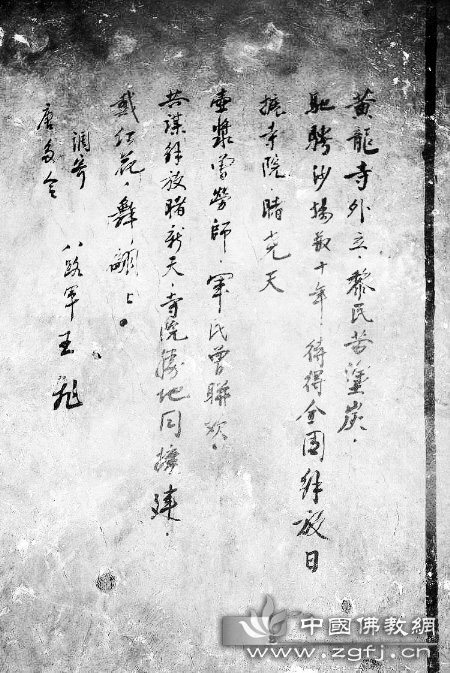 黄龍寺外立，黎民苦塗炭，
馳騁沙場数十年，待得全國解放日
振寺院，睹尧天
壺漿曾勞師，軍民曾聯欢，
共謀解放睹新天，寺院勝地同擴建，
戴红花，舞翩上。
調寄
唐多令
八路军王旭
中國佛教網
www.zgfj.cn